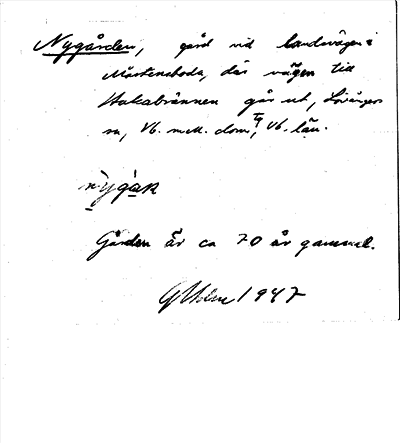 Nygården, gård vid landsvägen i
Mårtensboda, där vägen till
Hakabrännen går ut, Lövångers
sn, Vb. m.ll. dom, Vb. län.
nygaʀ
Gården är ca 70 år gammal.
1947